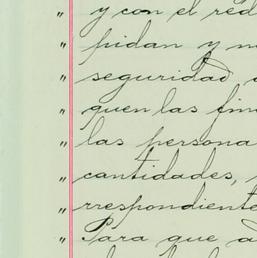 " y con el red
" pidan y m
" seguridad
" quen las fin
" las persona
" cantidades,
" rrespondiente
" Para que a